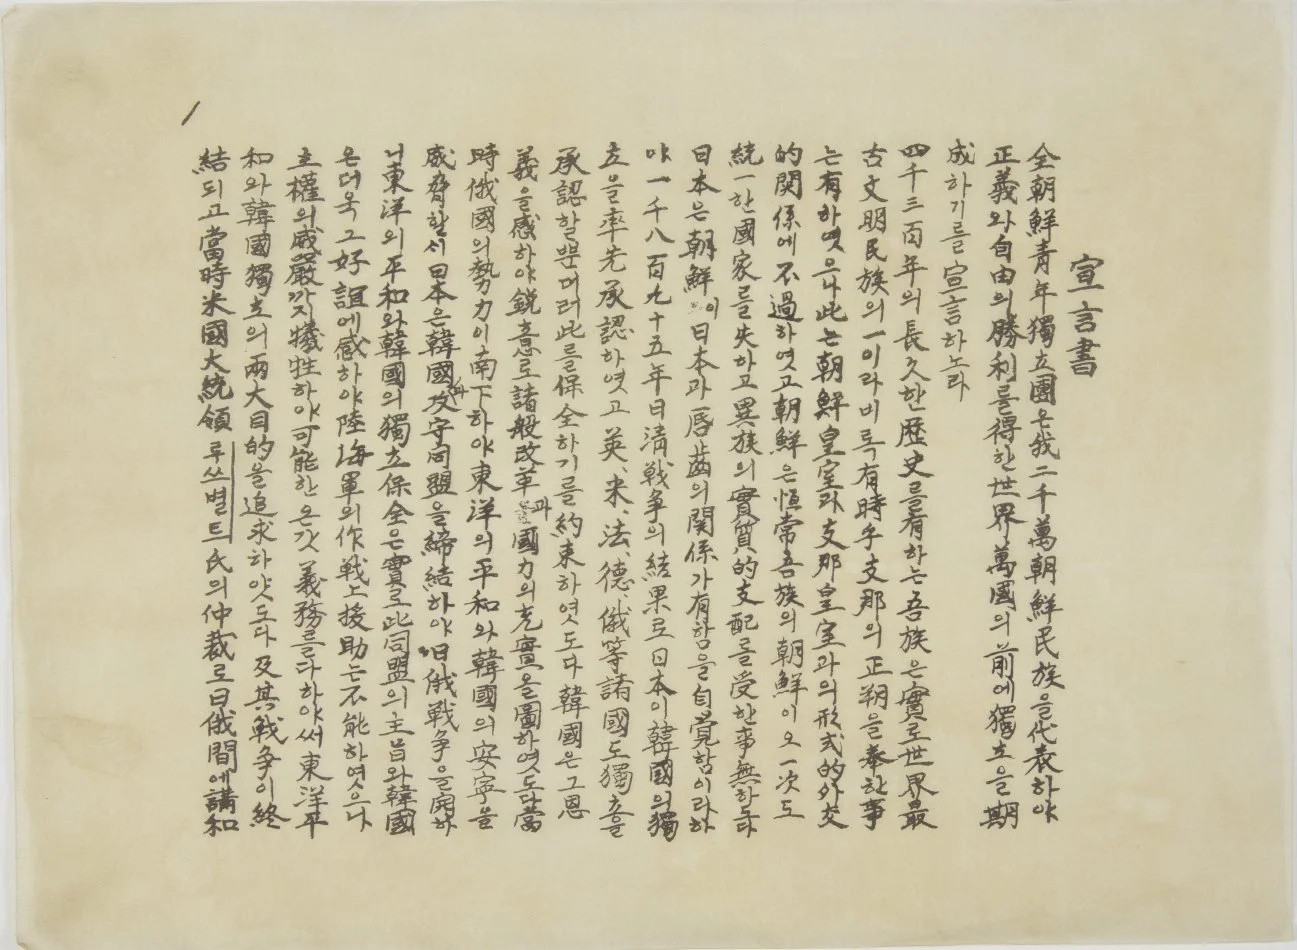 宣言書
全朝鮮青年獨立團은我二千萬朝鮮民族을代表하야
正義와自由의勝利를得한世界萬國의前에獨立을期
成하기를宣言하노라
四千三百年의長久한歷史를有하는吾族은實로世界最
古文明民族의一이라비록有時乎支那의正朔을奉한事
는有하엿으나此는朝鮮皇室과支那皇室과의形式的外交
的關係에不過하엿고朝鮮은恒常吾族의朝鮮이오一次도
統一한國家를失하고異族의實質的支配를受한事無하도다
日本은朝鮮이日本과唇齒의関係가有함을自覺함이라하
야一千八百九十五年日淸戰爭의結果로日本이韓國의獨
立을率先承認하엿고英、米、法、德、俄等諸國도獨立을
承認할뿐더러此를保全하기를約束하엿도다韓國은그恩
義을感하야鋭意로諸般改革과國力의充實을圖하엿도다當
時俄國의勢力이南下하야東洋의平和와韓國의安寧을
威脅할새日本은韓國과攻守同盟을締結하야日俄戰爭을開하
니東洋의平和와韓國의獨立保全은實로此同盟의主旨와韓國
은더욱그好誼에感하야陸海軍의作戰上援助는不能하엿으나
主權의威嚴까지犧牲하야可能한온갓義務를다하야써東洋平
和와韓國獨立의兩大目的을追求하얏도다及其戰爭이終
結되고當時米國大統領루쓰벨트氏의仲裁로日俄間에講和